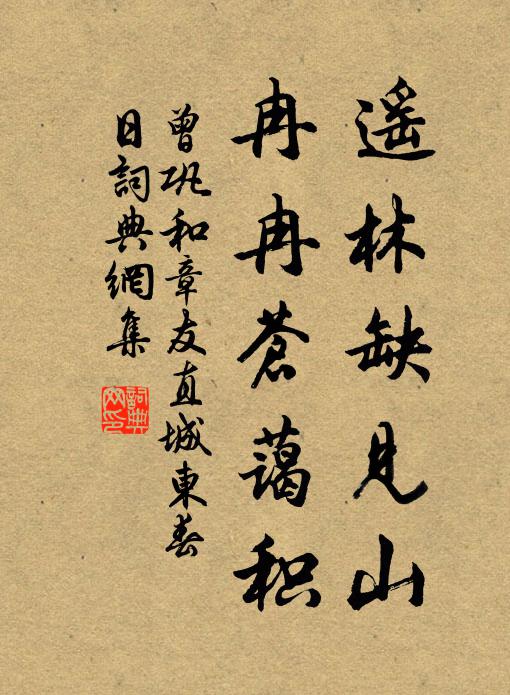 遥林缺見山
冉冉蒼藹积
曾巩和章友直城東春
日詞典網集
詞典
网印